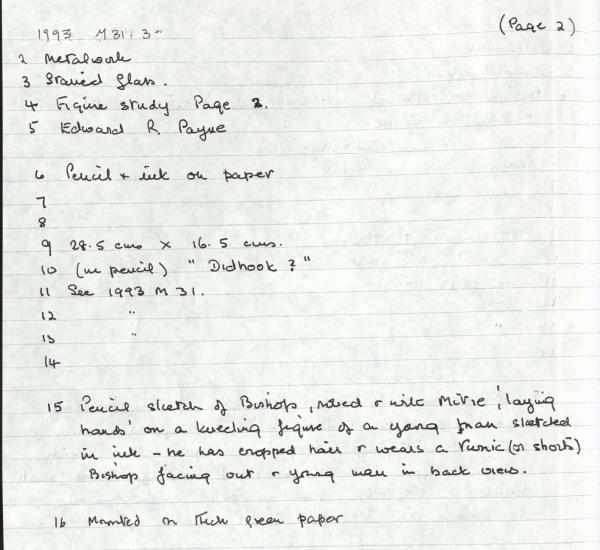 (Page 2)
1993 M 31. 3-
2 Metalwork
3 Stained Glass.
4 Figure study. Page 2.
5 Edward R. Payne
6 Pencil + ink on paper
7
8
9 28.5 cms x 16.5 cms.
10 (in pencil) " Didhook ? "
11 See 1993 M 31.
12 "
13 "
14
15 Pencil sketch of Bishop, robed & with Mitre, 'laying
hands' on a kneeling figure of a young man sketched
in ink - he has cropped hair & wears a tunic (or shorts)
Bishop facing out & young man in back view.
16 Mounted on thick green paper